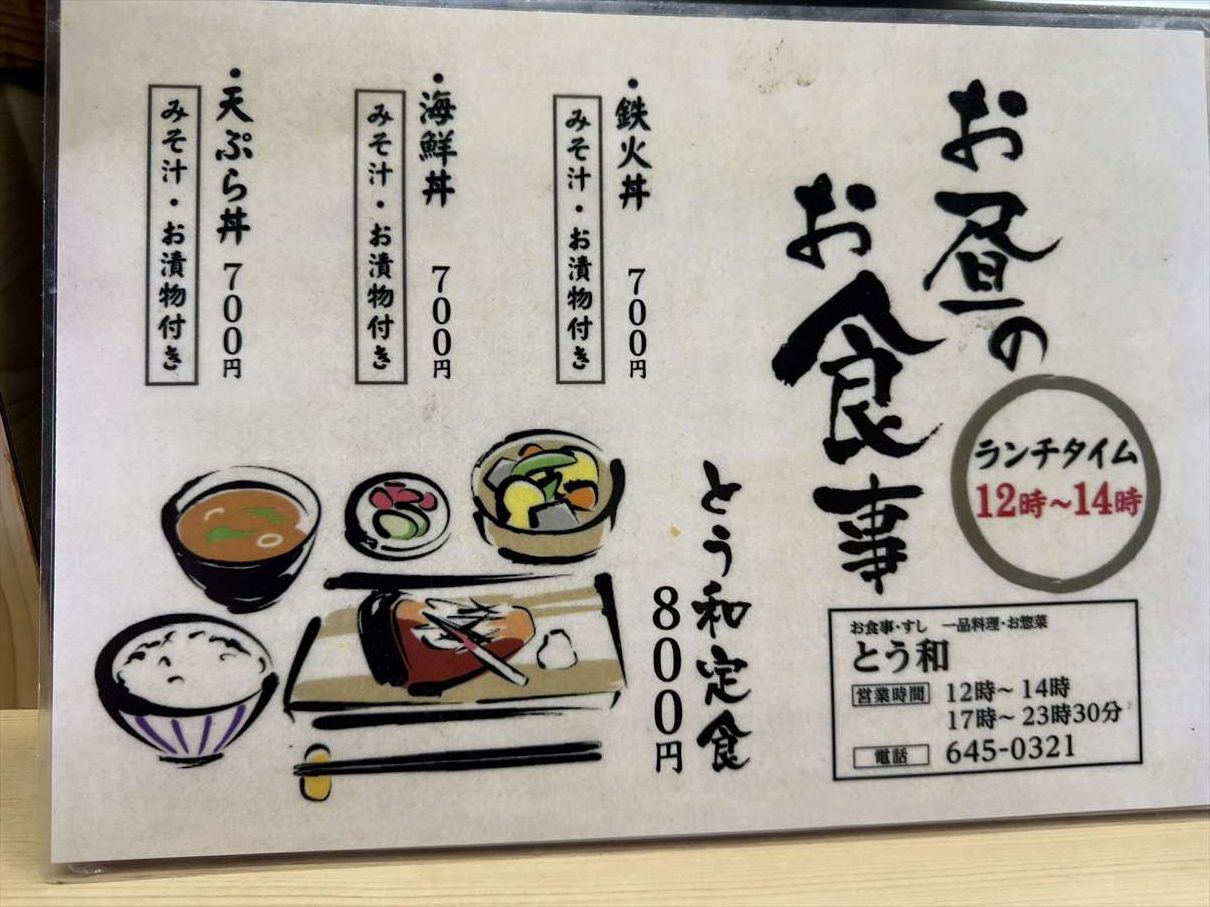 お昼の
お食事
ランチタイム
12時～14時
・鉄火丼 700円
みそ汁・お漬物付き
・海鮮丼 700円
みそ汁・お漬物付き
・天ぷら丼 700円
みそ汁・お漬物付き
とう和定食
800円
お食事・すし 一品料理・お惣菜
とう和
営業時間 12時～14時
17時～23時30分
電話 645-0321